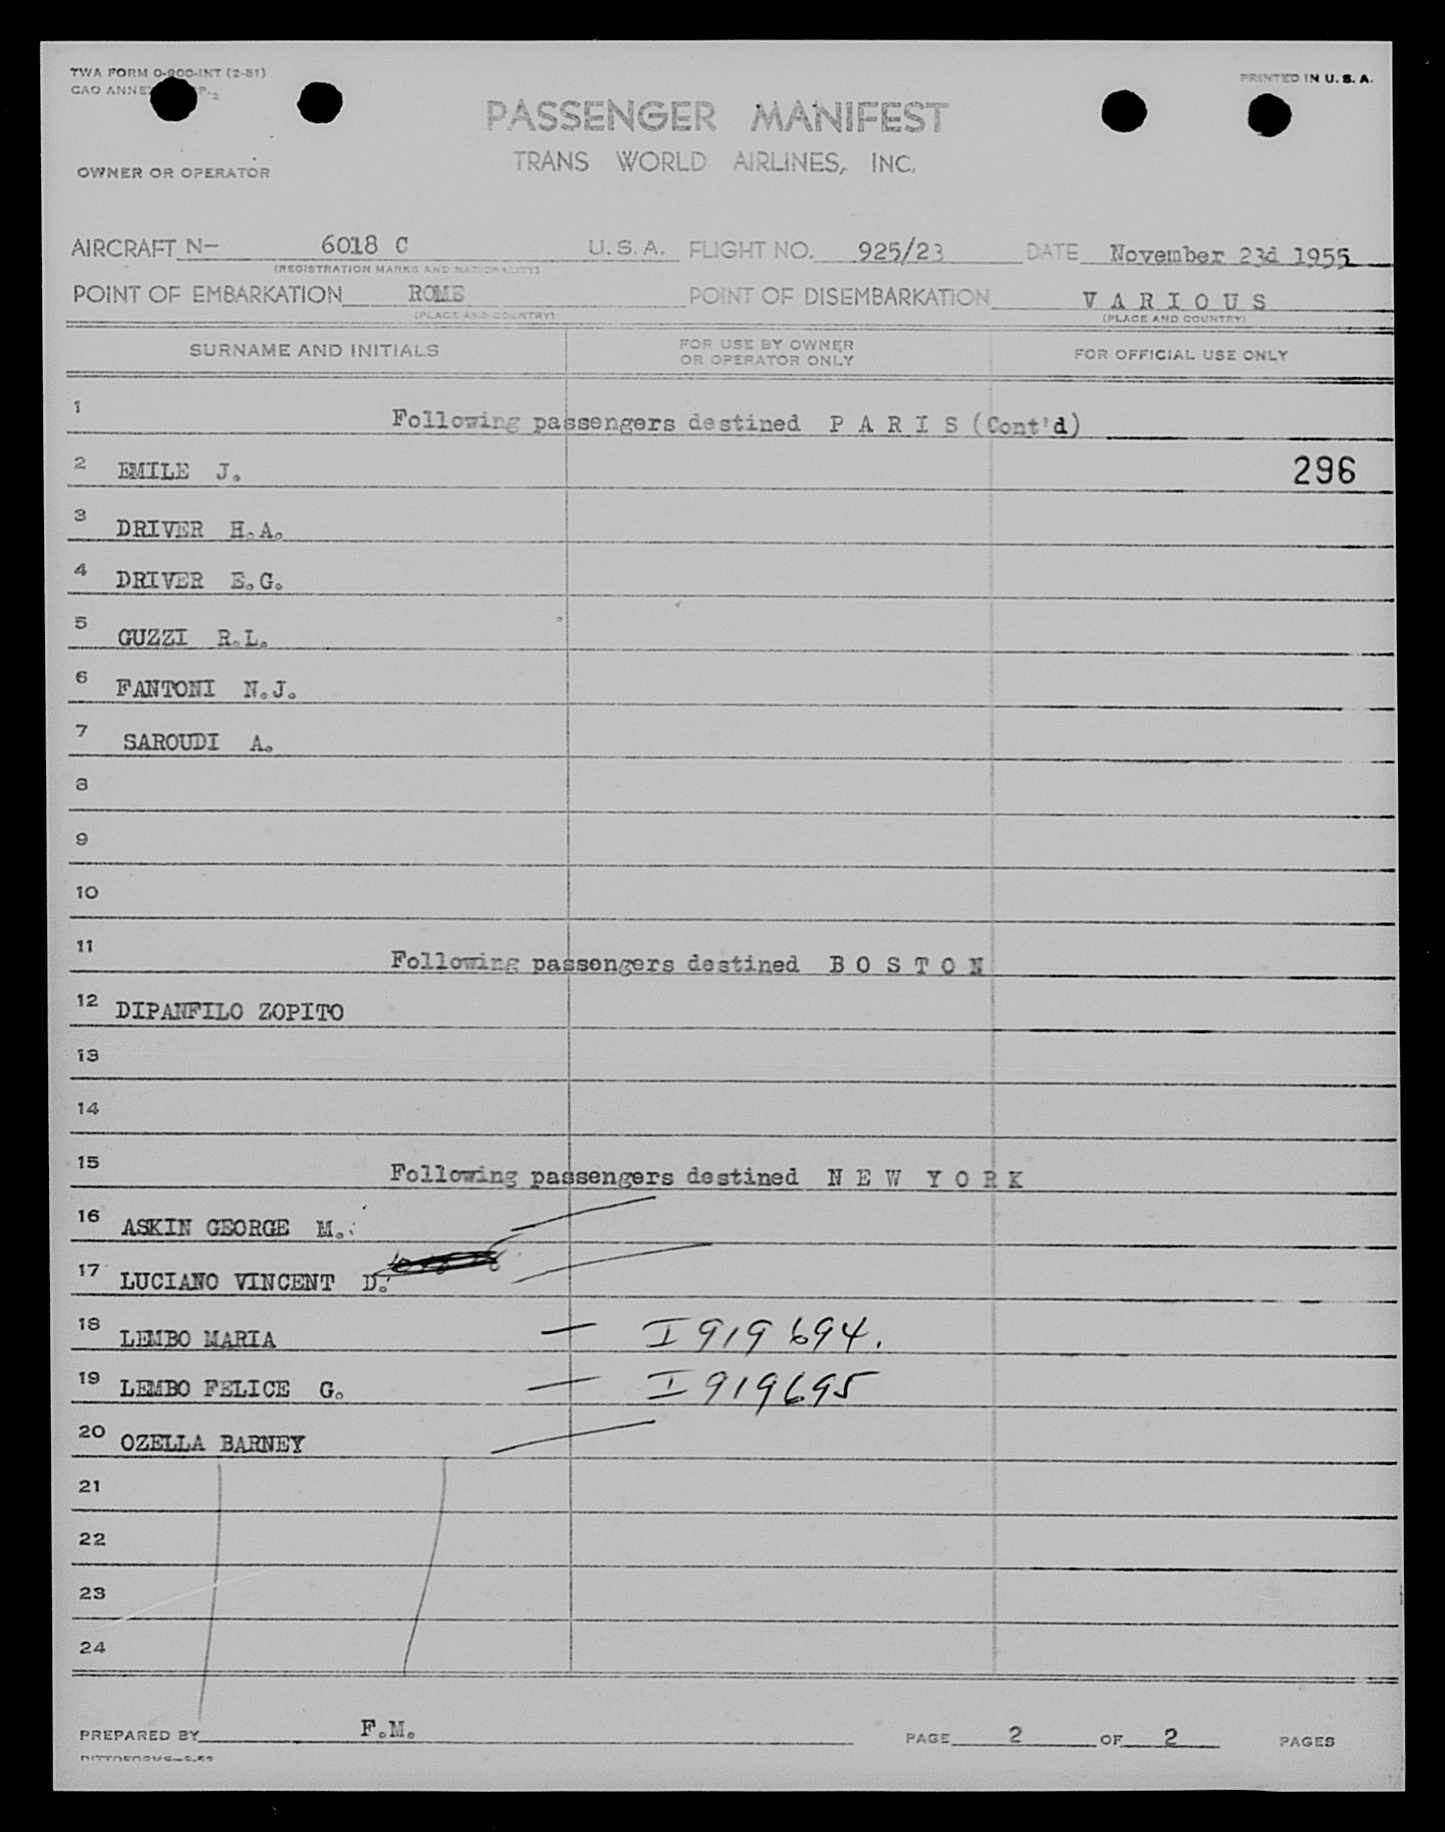 TWA FORM O-900-INT (2-51)
PRINTED IN U.S.A.
PASSENGER MANIFEST
TRANS WORLD AIRLINES, INC.
OWNER OR OPERATOR
AIRCRAFT N- 6018 C U.S.A. FLIGHT NO. 925/23 DATE November 23d 1955
(REGISTRATION MARKS AND NATIONALITY)
POINT OF EMBARKATION ROME POINT OF DISEMBARKATION V A R I O U S
(PLACE AND COUNTRY) (PLACE AND COUNTRY)
SURNAME AND INITIALS FOR USE BY OWNER OR OPERATOR ONLY FOR OFFICIAL USE ONLY
1 Following passengers destined P A R I S (Cont'd)
2 EMILE J. 296
3 DRIVER H.A.
4 DRIVER E.G.
5 GUZZI R.L.
6 FANTONI N.J.
7 SAROUDI A.
8
9
10
11 Following passengers destined B O S T O N
12 DIPANFILO ZOPITO
13
14
15 Following passengers destined N E W Y O R K
16 ASKIN GEORGE M.
17 LUCIANO VINCENT D.
18 LEMBO MARIA — I 919 694.
19 LEMBO FELICE G. — I 919695
20 OZELLA BARNEY
21
22
23
24
PREPARED BY F.M. PAGE 2 OF 2 PAGES